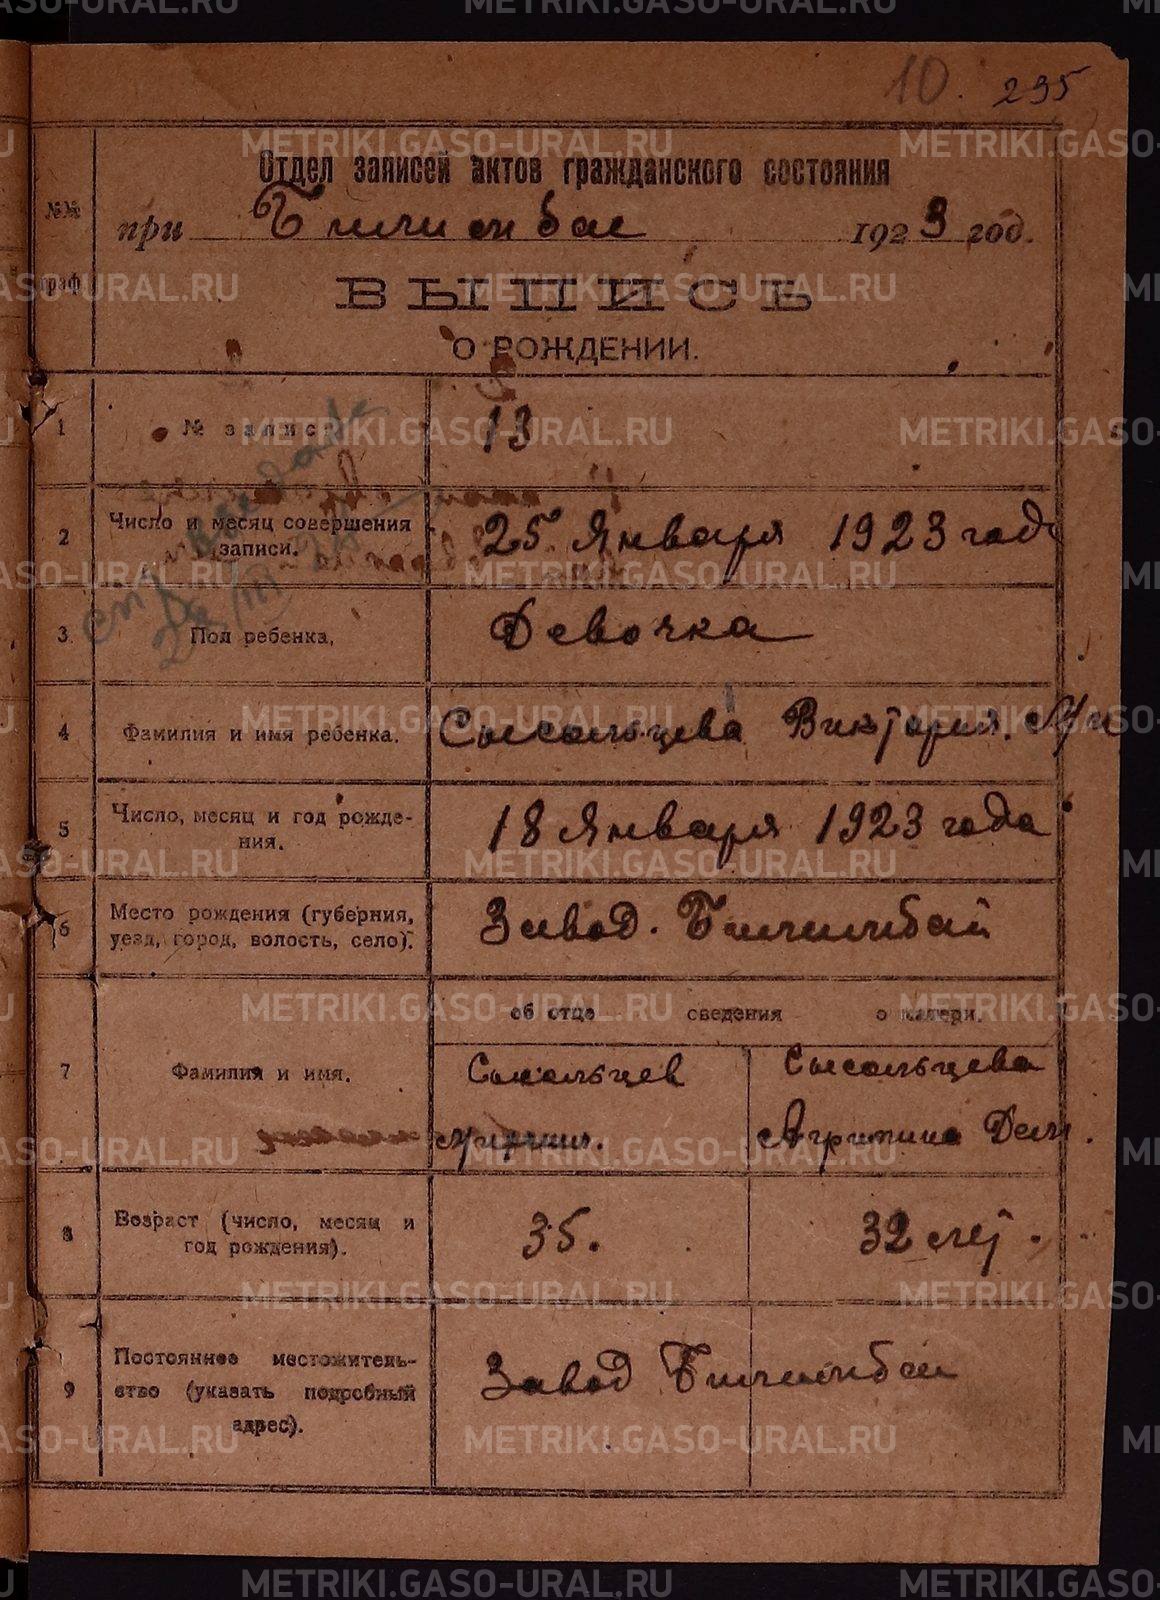 10. 295
Отдел записей актов гражданского состояния
№№ граф
при Билимбае 1923 год.
ВЫПИСЬ
О РОЖДЕНИИ.
1 № записи 13
2 Число и месяц совершения записи. 25 Января 1923 год
3 Пол ребенка, Девочка
4 Фамилия и имя ребенка. Сысольцева Виктория.
5 Число, месяц и год рожде-
ния. 18 Января 1923 года
6 Место рождения (губерния,
уезд, город, волость, село). Завод. Билимбай
об отце сведения о матери.
7 Фамилия и имя. Сысольцев Сысольцева
Агрипина
8 Возраст (число, месяц и
год рождения). 35. 32 лет.
9 Постоянное местожитель-
ство (указать подробный
адрес). Завод Билимбай
METRIKI.GASO-URAL.RU